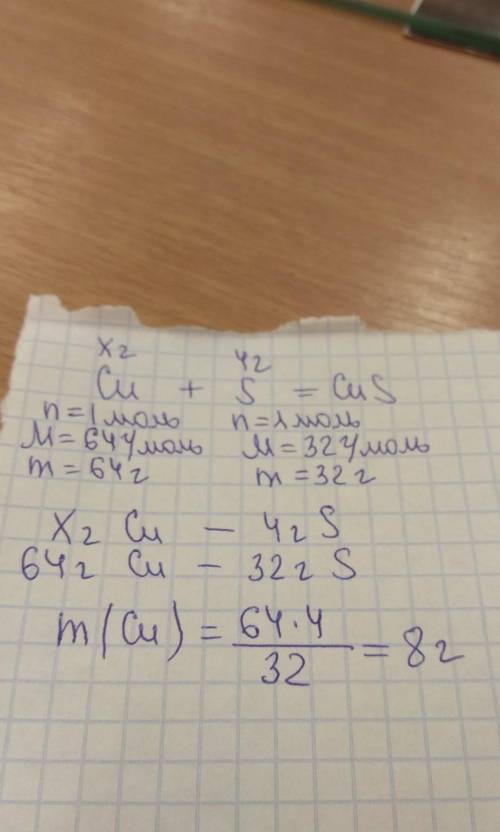 xг 4г
Cu + S = CuS
n=1моль n=1моль
M=64г/моль M=32г/моль
m=64г m=32г
xг Cu — 4г S
64г Cu — 32г S
m(Cu) = 64·4/32 = 8г